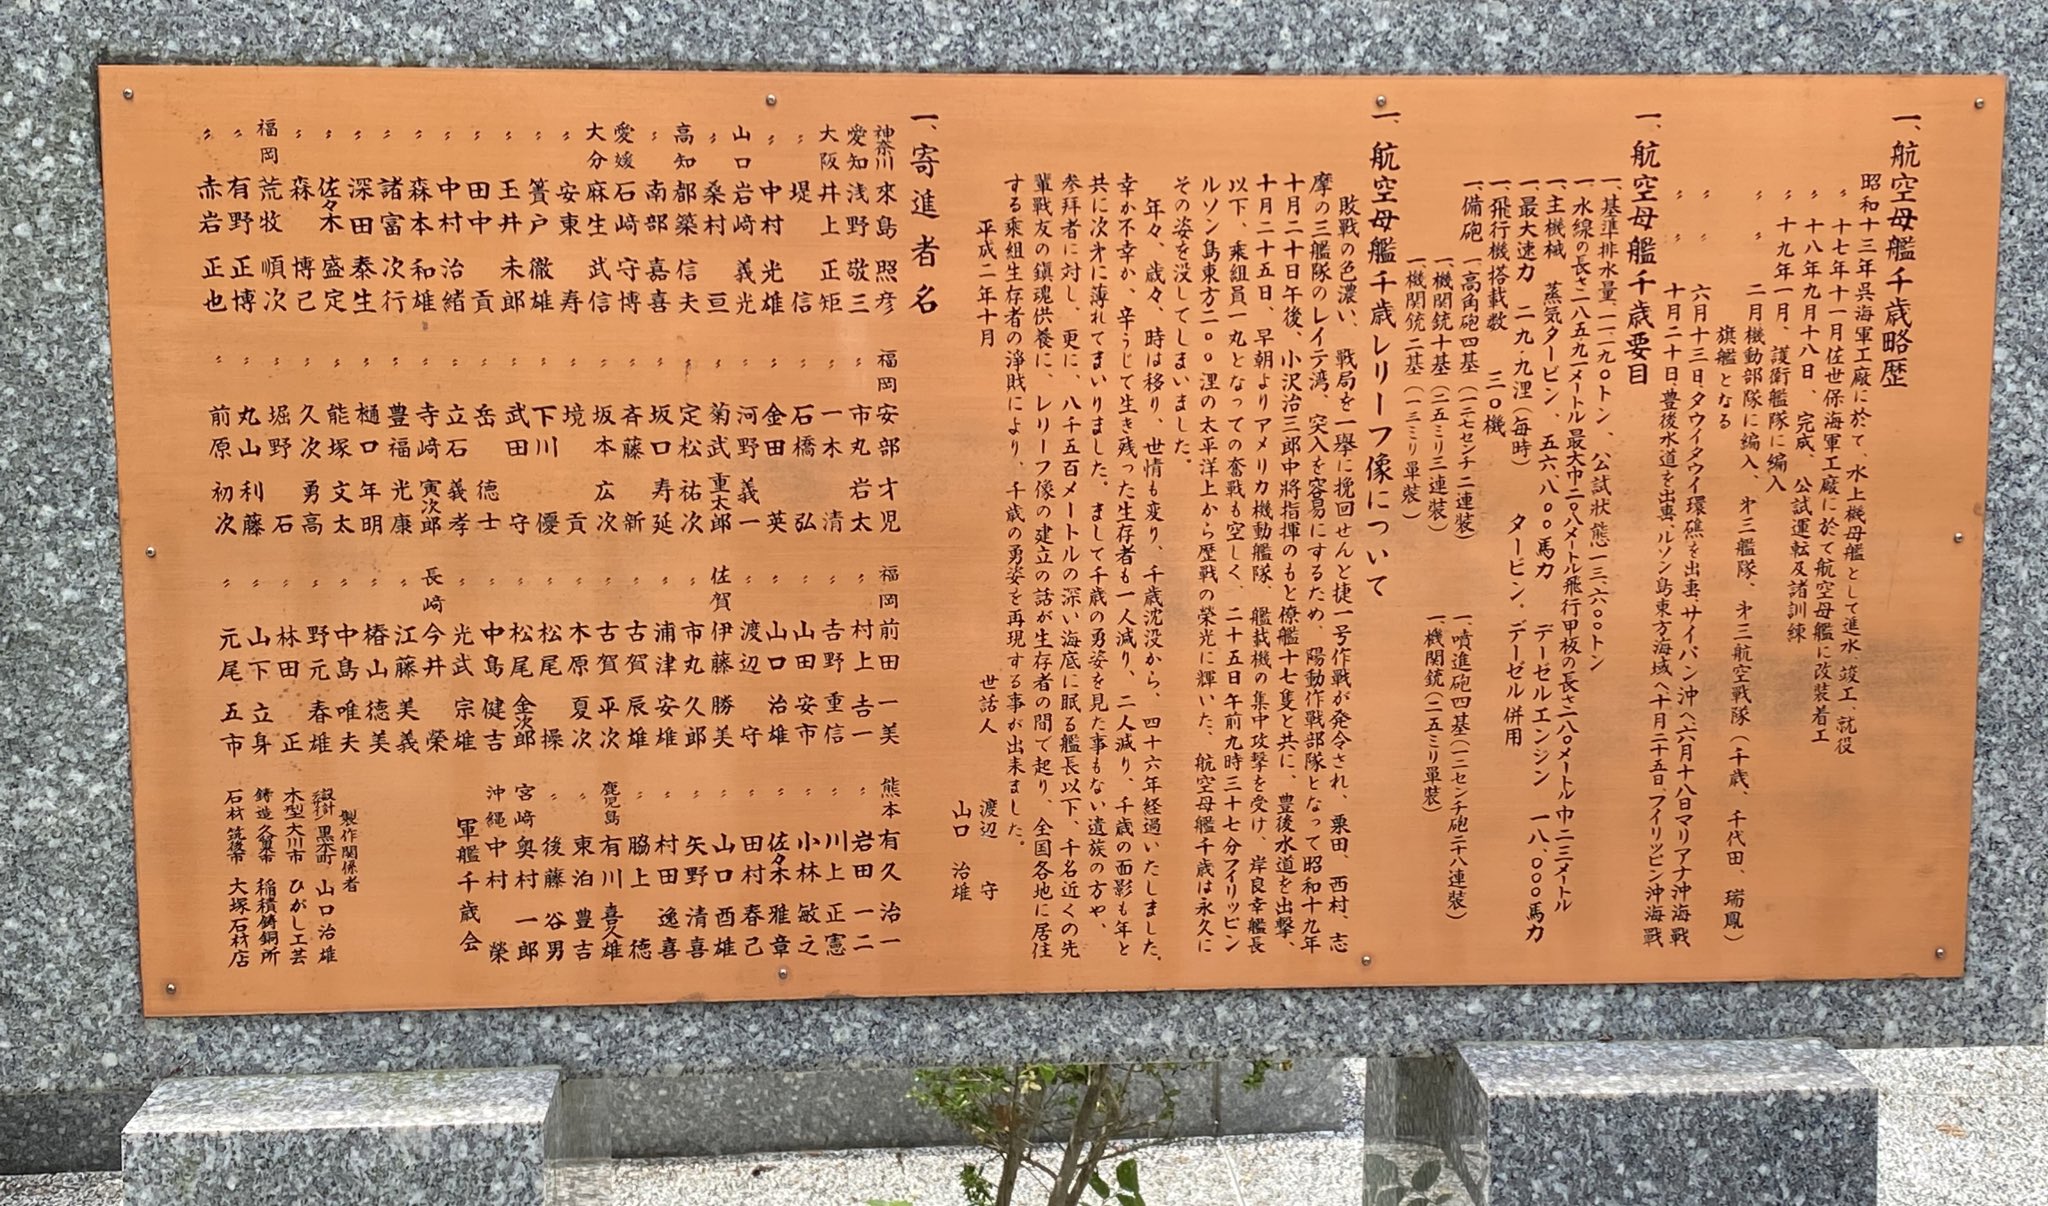 一、航空母艦千歳略歴
昭和十三年呉海軍工廠に於て、水上機母艦として進水、竣工、就役
〃 十七年十一月佐世保海軍工廠に於て航空母艦に改装着工
〃 十八年九月十八日、完成、公試運転及諸訓練
〃 十九年一月、護衛艦隊に編入
〃 〃 二月機動部隊に編入、㐧三艦隊、㐧三航空戦隊(千歳、千代田、瑞鳳)
旗艦となる
〃 〃 六月十三日、タウイタウイ環礁を出撃、サイパン沖へ六月十八日マリアナ沖海戦
十月二十日、豊後水道を出撃、ルソン島東方海域へ十月二十五日、フイリッピン沖海戦
一、航空母艦千歳要目
一、基準排水量、一一、一九〇トン、公試状態一三、六〇〇トン
一、水線の長さ一八五.九一メートル最大巾二〇.八メートル飛行甲板の長さ一八〇メートル巾二三メートル
一、主機械 蒸気タービン、五六、八〇〇馬力 デーゼルエンジン 一八、〇〇〇馬力
一、最大速力 二九.九浬(毎時) タービン、デーゼル併用
一、飛行機搭載数 三〇機
一、備砲 一、高角砲四基(一二七センチ二連装) 一、噴進砲四基(一二センチ砲二十八連装)
一、機関銃十基(二五ミリ三連装) 一、機関銃(二五ミリ單装)
一、機関銃二基(一三ミリ單装)
一、航空母艦千歳レリーフ像について
敗戰の色濃い、戰局を一擧に挽回せんと捷一号作戰が発令され、栗田、西村、志
摩の三艦隊のレイテ湾、突入を容易にするため、陽動作戰部隊となって昭和十九年
十月二十日午後、小沢治三郎中將指揮のもと僚艦十七隻と共に、豊後水道を出撃、
十月二十五日、早朝よりアメリカ機動艦隊、艦載機の集中攻撃を受け、岸良幸艦長
以下、乗組員一丸となっての奮戰も空しく、二十五日午前九時三十七分フイリッピン
ルソン島東方二〇〇浬の太平洋上から歴戰の榮光に輝いた、航空母艦千歳は永久に
その姿を没してしまいました。
年々、歳々、時は移り、世情も変り、千歳沈没から、四十六年経過いたしました。
幸か不幸か、辛うじて生き残った生存者も一人減り、二人減り、千歳の面影も年と
共に次㐧に薄れてまいりました。まして千歳の勇姿を見た事もない遺族の方や、
参拝者に対し、更に、八千五百メートルの深い海底に眠る艦長以下、千名近くの先
輩戰友の鎮魂供養に、レリーフ像の建立の話が生存者の間で起り、全国各地に居住
する乗組生存者の淨財により、千歳の勇姿を再現する事が出来ました。
平成二年十月 世話人 渡辺 守
山口 治雄
一、寄進者名
神奈川 來島 照彦
愛知 浅野 敬三
大阪 井上 正矩
〃 堤 信
〃 中村 光雄
山口 岩崎 義光
〃 桑村 亘
高知 都築 信夫
〃 南部 嘉喜
愛媛 石崎 守博
大分 麻生 武信
〃 安東 寿
〃 簀戸 徹雄
〃 玉井 未郎
〃 田中 貢
〃 中村 治緒
〃 森本 和雄
〃 諸富 次行
〃 深田 泰生
〃 佐々木 盛定
〃 森 博己
福岡 荒牧 順次
〃 有野 正博
〃 赤岩 正也
福岡 安部 才児
〃 市丸 岩太
〃 一木 清
〃 石橋 弘
〃 金田 英
〃 河野 義一
〃 菊武 重太郎
〃 定松 祐次
〃 坂口 寿延
〃 斉藤 新
〃 坂本 広次
〃 境 貢
〃 下川 優
〃 武田 守
〃 岳 徳士
〃 立石 義孝
〃 寺崎 寅次郎
〃 豊福 光康
〃 樋口 年明
〃 能塚 文太
〃 久次 勇高
〃 堀野 石
〃 丸山 利藤
〃 前原 初次
福岡 前田 一美
〃 村上 吉一
〃 吉野 重信
〃 山田 安市
〃 山口 治雄
〃 渡辺 守
佐賀 伊藤 勝美
〃 市丸 久郎
〃 浦津 安雄
〃 古賀 辰雄
〃 古賀 平次
〃 木原 夏次
〃 松尾 操
〃 松尾 金次郎
〃 中島 健吉
〃 光武 宗雄
長崎 今井 榮
〃 江藤 美義
〃 椿山 徳美
〃 中島 唯夫
〃 野元 春雄
〃 林田 正
〃 山下 立身
〃 元尾 五市
熊本 有久 治一
〃 岩田 一二
〃 川上 正憲
〃 小林 敏之
〃 佐々木 雅章
〃 田村 春己
〃 山口 酉雄
〃 矢野 清喜
〃 村田 逸喜
〃 脇上 徳
鹿児島 有川 喜久雄
〃 東泊 豊吉
〃 後藤 谷男
宮崎 奥村 一郎
沖縄 中村 榮
軍艦千歳会
製作関係者
設計 黒木町 山口治雄
木型 大川市 ひがし工芸
鋳造 久留米市 稲積鋳銅所
石材 筑後市 大塚石材店